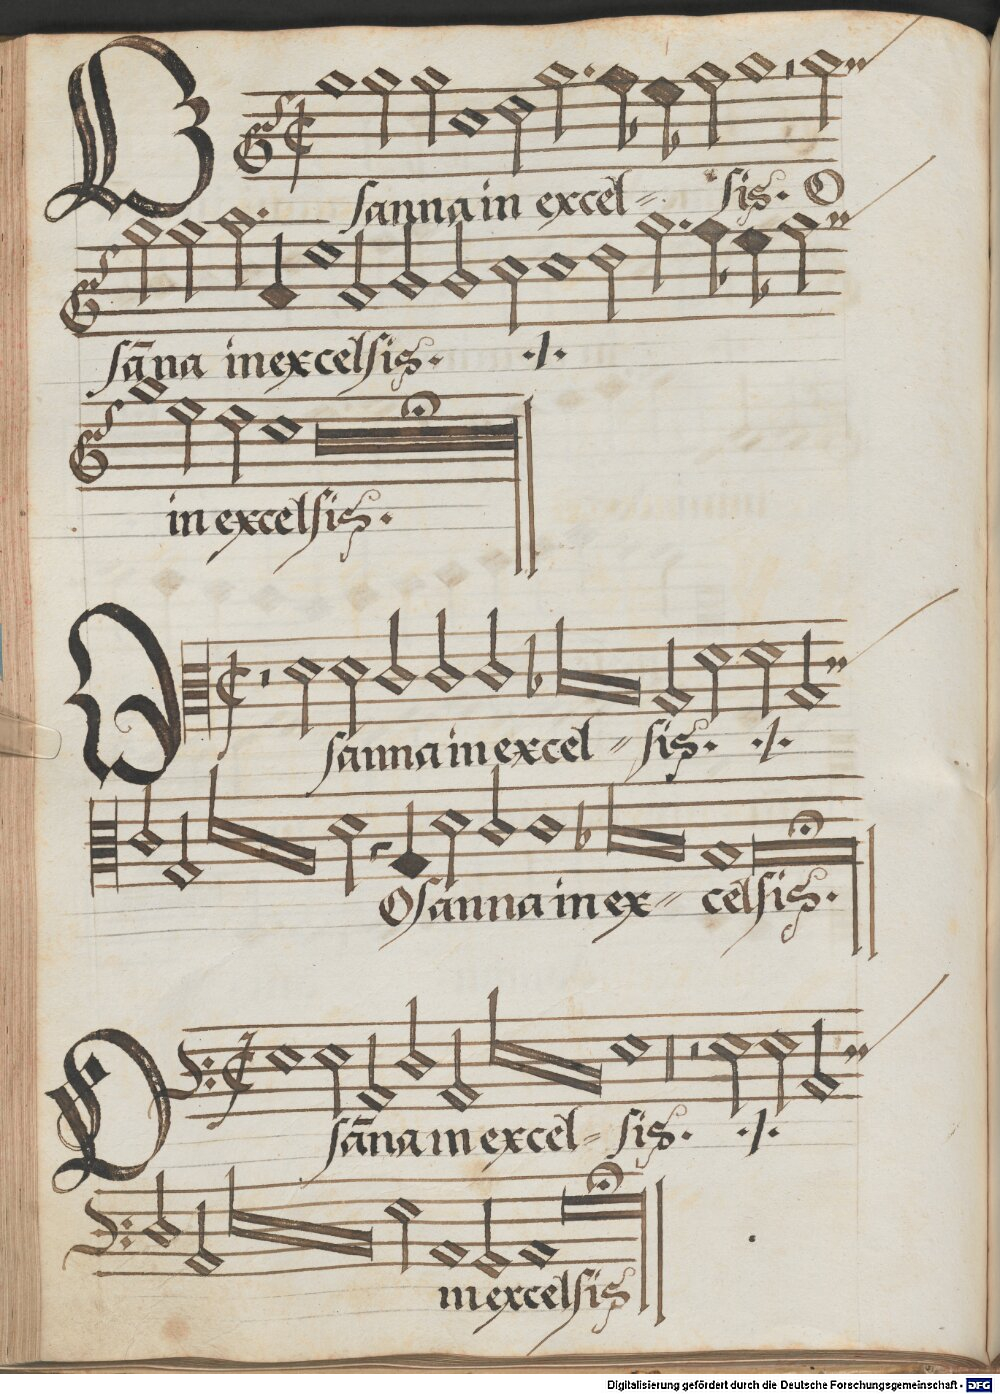 Osanna in excel= sis. O
sāna in excelsis. ./.
in excelsis.
Osanna in excel= sis. ./.
Osanna in ex= celsis.
Osāna in excel= sis. ./.
in excelsis
Digitalisierung gefördert durch die Deutsche Forschungsgemeinschaft - DFG